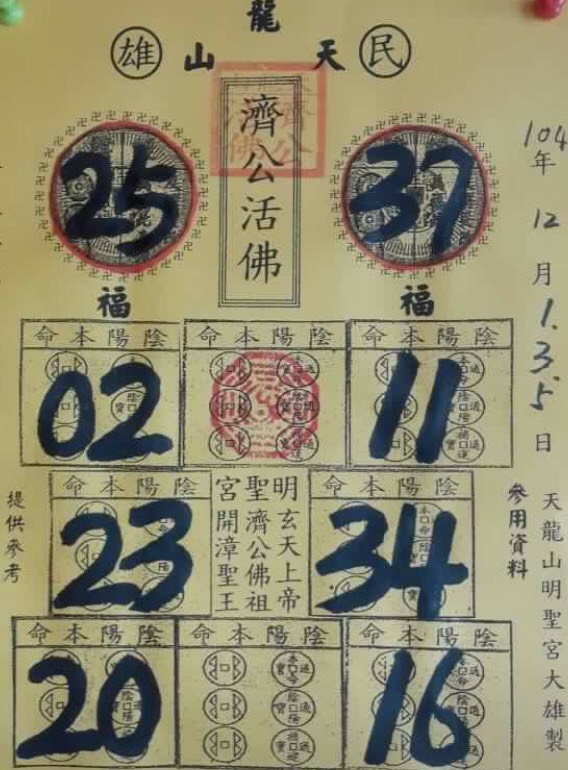 龍
雄 山 天 民
濟公活佛
25 37
福 福
命本陽陰 命本陽陰 命本陽陰
02 11
命本陽陰 宮聖明 命本陽陰
23 34
明玄天上帝
聖濟公佛祖
宮開漳聖王
命本陽陰 命本陽陰 命本陽陰
20 16
104年12月1.3.5日
參用資料
提供參考
天龍山明聖宮大雄製